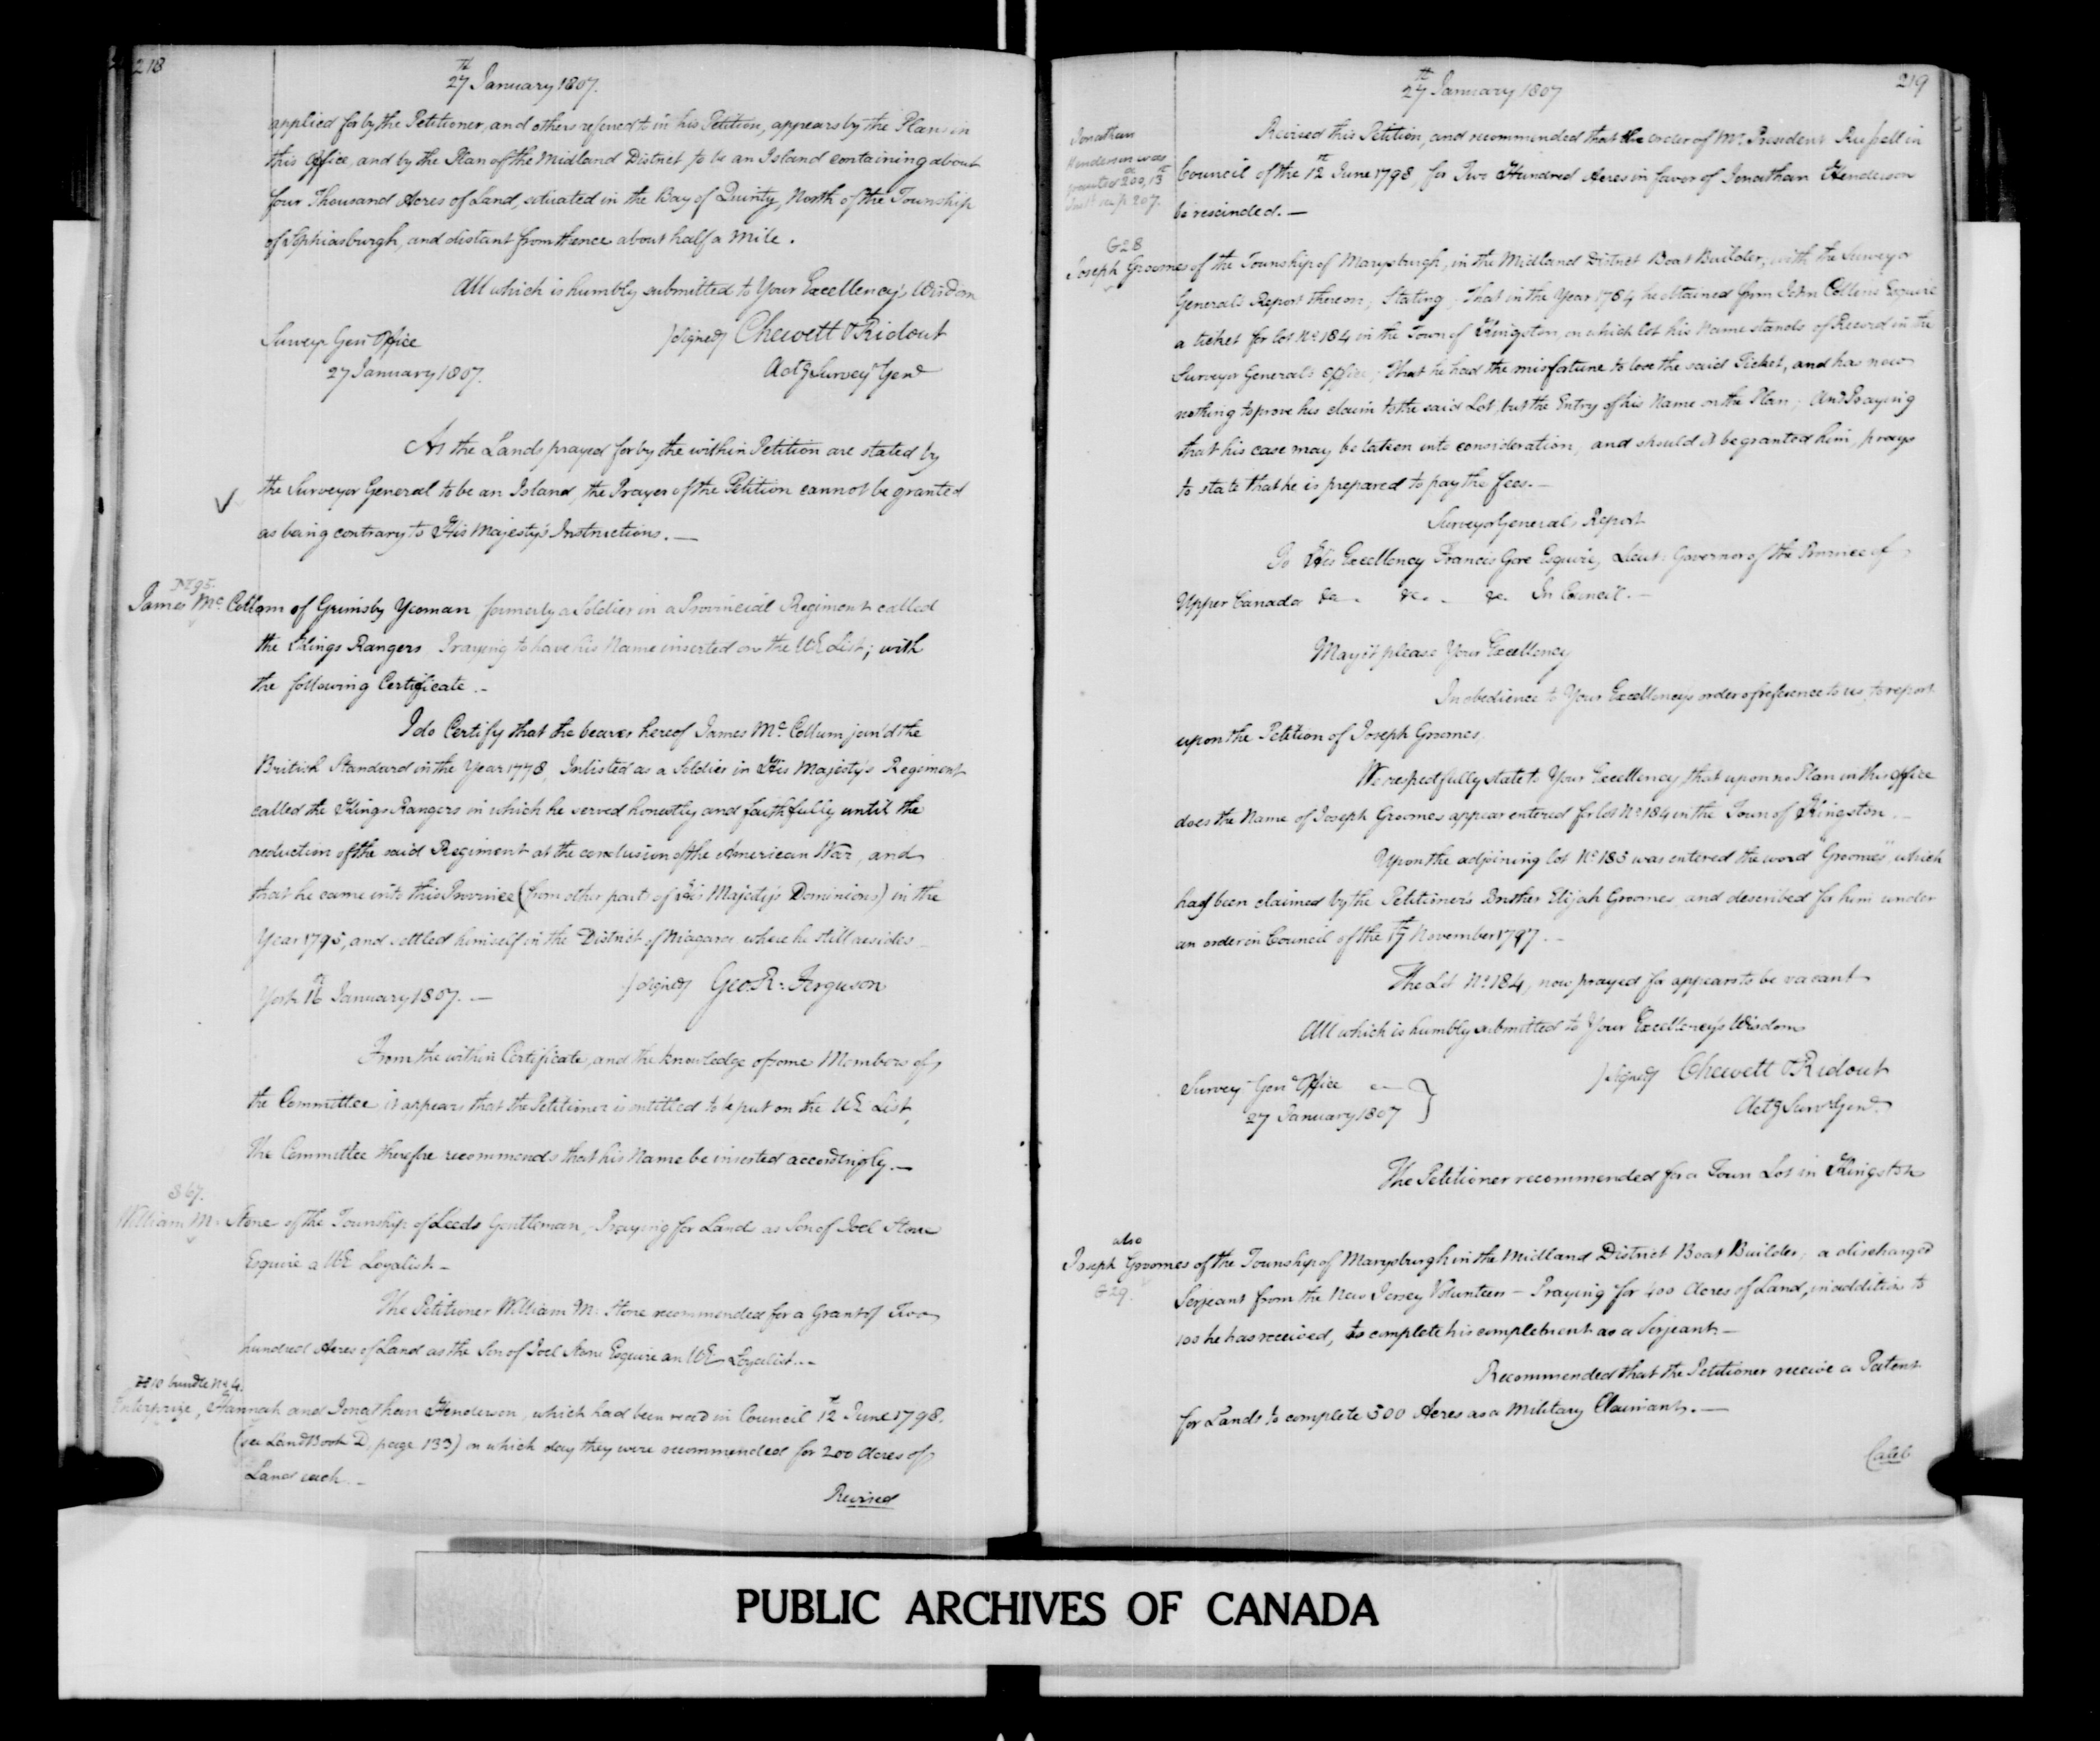 218
27th January 1807.
applied for by the Petitioner, and others referred to in his Petition, appears by the Plans in
this Office, and by the Plan of the Midland District to be an Island containing about
four Thousand Acres of Land, situated in the Bay of Quinty, North of the Township
of Sophiasburgh, and distant from thence about half a Mile.
All which is humbly submitted to Your Excellency's Wisdom
Surveyr Genls Office
(signed) Chewett & Ridout
27 January 1807.
Actg Surveyr Genl
As the Lands prayed for by the within Petition are stated by
the Surveyor General to be an Island, the Prayer of the Petition cannot be granted
as being contrary to His Majesty's Instructions. —
James Mc Collom of Grimsby Yeoman formerly a Soldier in a Provincial Regiment called
the Kings Rangers Praying to have his Name inserted on the UE List; with
the following Certificate. -
I do Certify that the bearer hereof James Mc Collum join'd the
British Standard in the Year 1778, Inlisted as a Soldier in His Majesty's Regiment
called the Kings Rangers in which he served honestly and faithfully until the
reduction of the said Regiment at the conclusion of the American War, and
that he came into this Province (from other parts of His Majesty's Dominions) in the
Year 1795, and settled himself in the District of Niagara where he still resides -
York 16th January 1807. —
(signed) Geo. R. Ferguson
From the within Certificate, and the knowledge of some Members of
the Committee, it appears that the Petitioner is entitled to be put on the UE List,
The Committee therefore recommends that his Name be inserted accordingly. —
S 67.
William M. Stone of the Township of Leeds Gentleman, Praying for Land as Son of Joel Stone
Esquire a UE Loyalist -
The Petitioner William M. Stone recommended for a Grant of Two
hundred Acres of Land as the Son of Joel Stone Esquire an UE Loyalist. -
H 10 bundle No 4.
Enterprize, Hannah and Jonathan Henderson, which had been read in Council 12th June 1798.
(see Land Book D, page 133) on which day they were recommended for 200 Acres of
Land each. -
Revised
219
27th January 1807
Jonathan
Henderson was
Revised this Petition, and recommended that the order of Mr President Russell in
Council of the 12th June 1798, for Two Hundred Acres in favor of Jonathan Henderson
be rescinded. —
G 28
Joseph Groomes of the Township of Marysburgh, in the Midland District Boat Builder; with the Surveyor
General's Report thereon; Stating, That in the Year 1784 he obtained from John Collins Esquire
a ticket for lot No 184 in the Town of Kingston, on which lot his Name stands of Record in the
Surveyor General's Office; That he had the misfortune to lose the said Ticket, and has now
nothing to prove his claim to the said Lot, but the Entry of his Name on the Plan; And Praying
that his case may be taken into consideration, and should it be granted him, prays
to state that he is prepared to pay the fees. —
Surveyor General's Report
To His Excellency Francis Gore Esquire, Lieut: Governor of the Province of
Upper Canada &c. &c. &c. In Council. —
May it please Your Excellency
In obedience to Your Excellency's order of reference to us, to report
upon the Petition of Joseph Groomes
We respectfully state to Your Excellency that upon no Plan in this Office
does the Name of Joseph Groomes appear entered for lot No 184 in the Town of Kingston. -
Upon the adjoining lot No 185 was entered the word "Groomes", which
had been claimed by the Petitioner's Brother Elijah Groomes, and described for him under
an order in Council of the 17th November 1797. -
The Lot No 184, now prayed for appears to be vacant
All which is humbly submitted to Your Excellency's Wisdom
(signed) Chewett & Ridout
Survey Genls Office
27 January 1807
Actg Survr Genl.
The Petitioner recommended for a Town Lot in Kingston
also
Joseph Groomes of the Township of Marysburgh in the Midland District Boat Builder, a discharged
G 29.
Serjeant from the New Jersey Volunteers — Praying for 400 Acres of Land, in addition to
100 he has received, to complete his complement as a Serjeant. —
Recommended that the Petitioner receive a Patent
for Lands to complete 300 Acres as a Military Claimant. —
Caleb
PUBLIC ARCHIVES OF CANADA